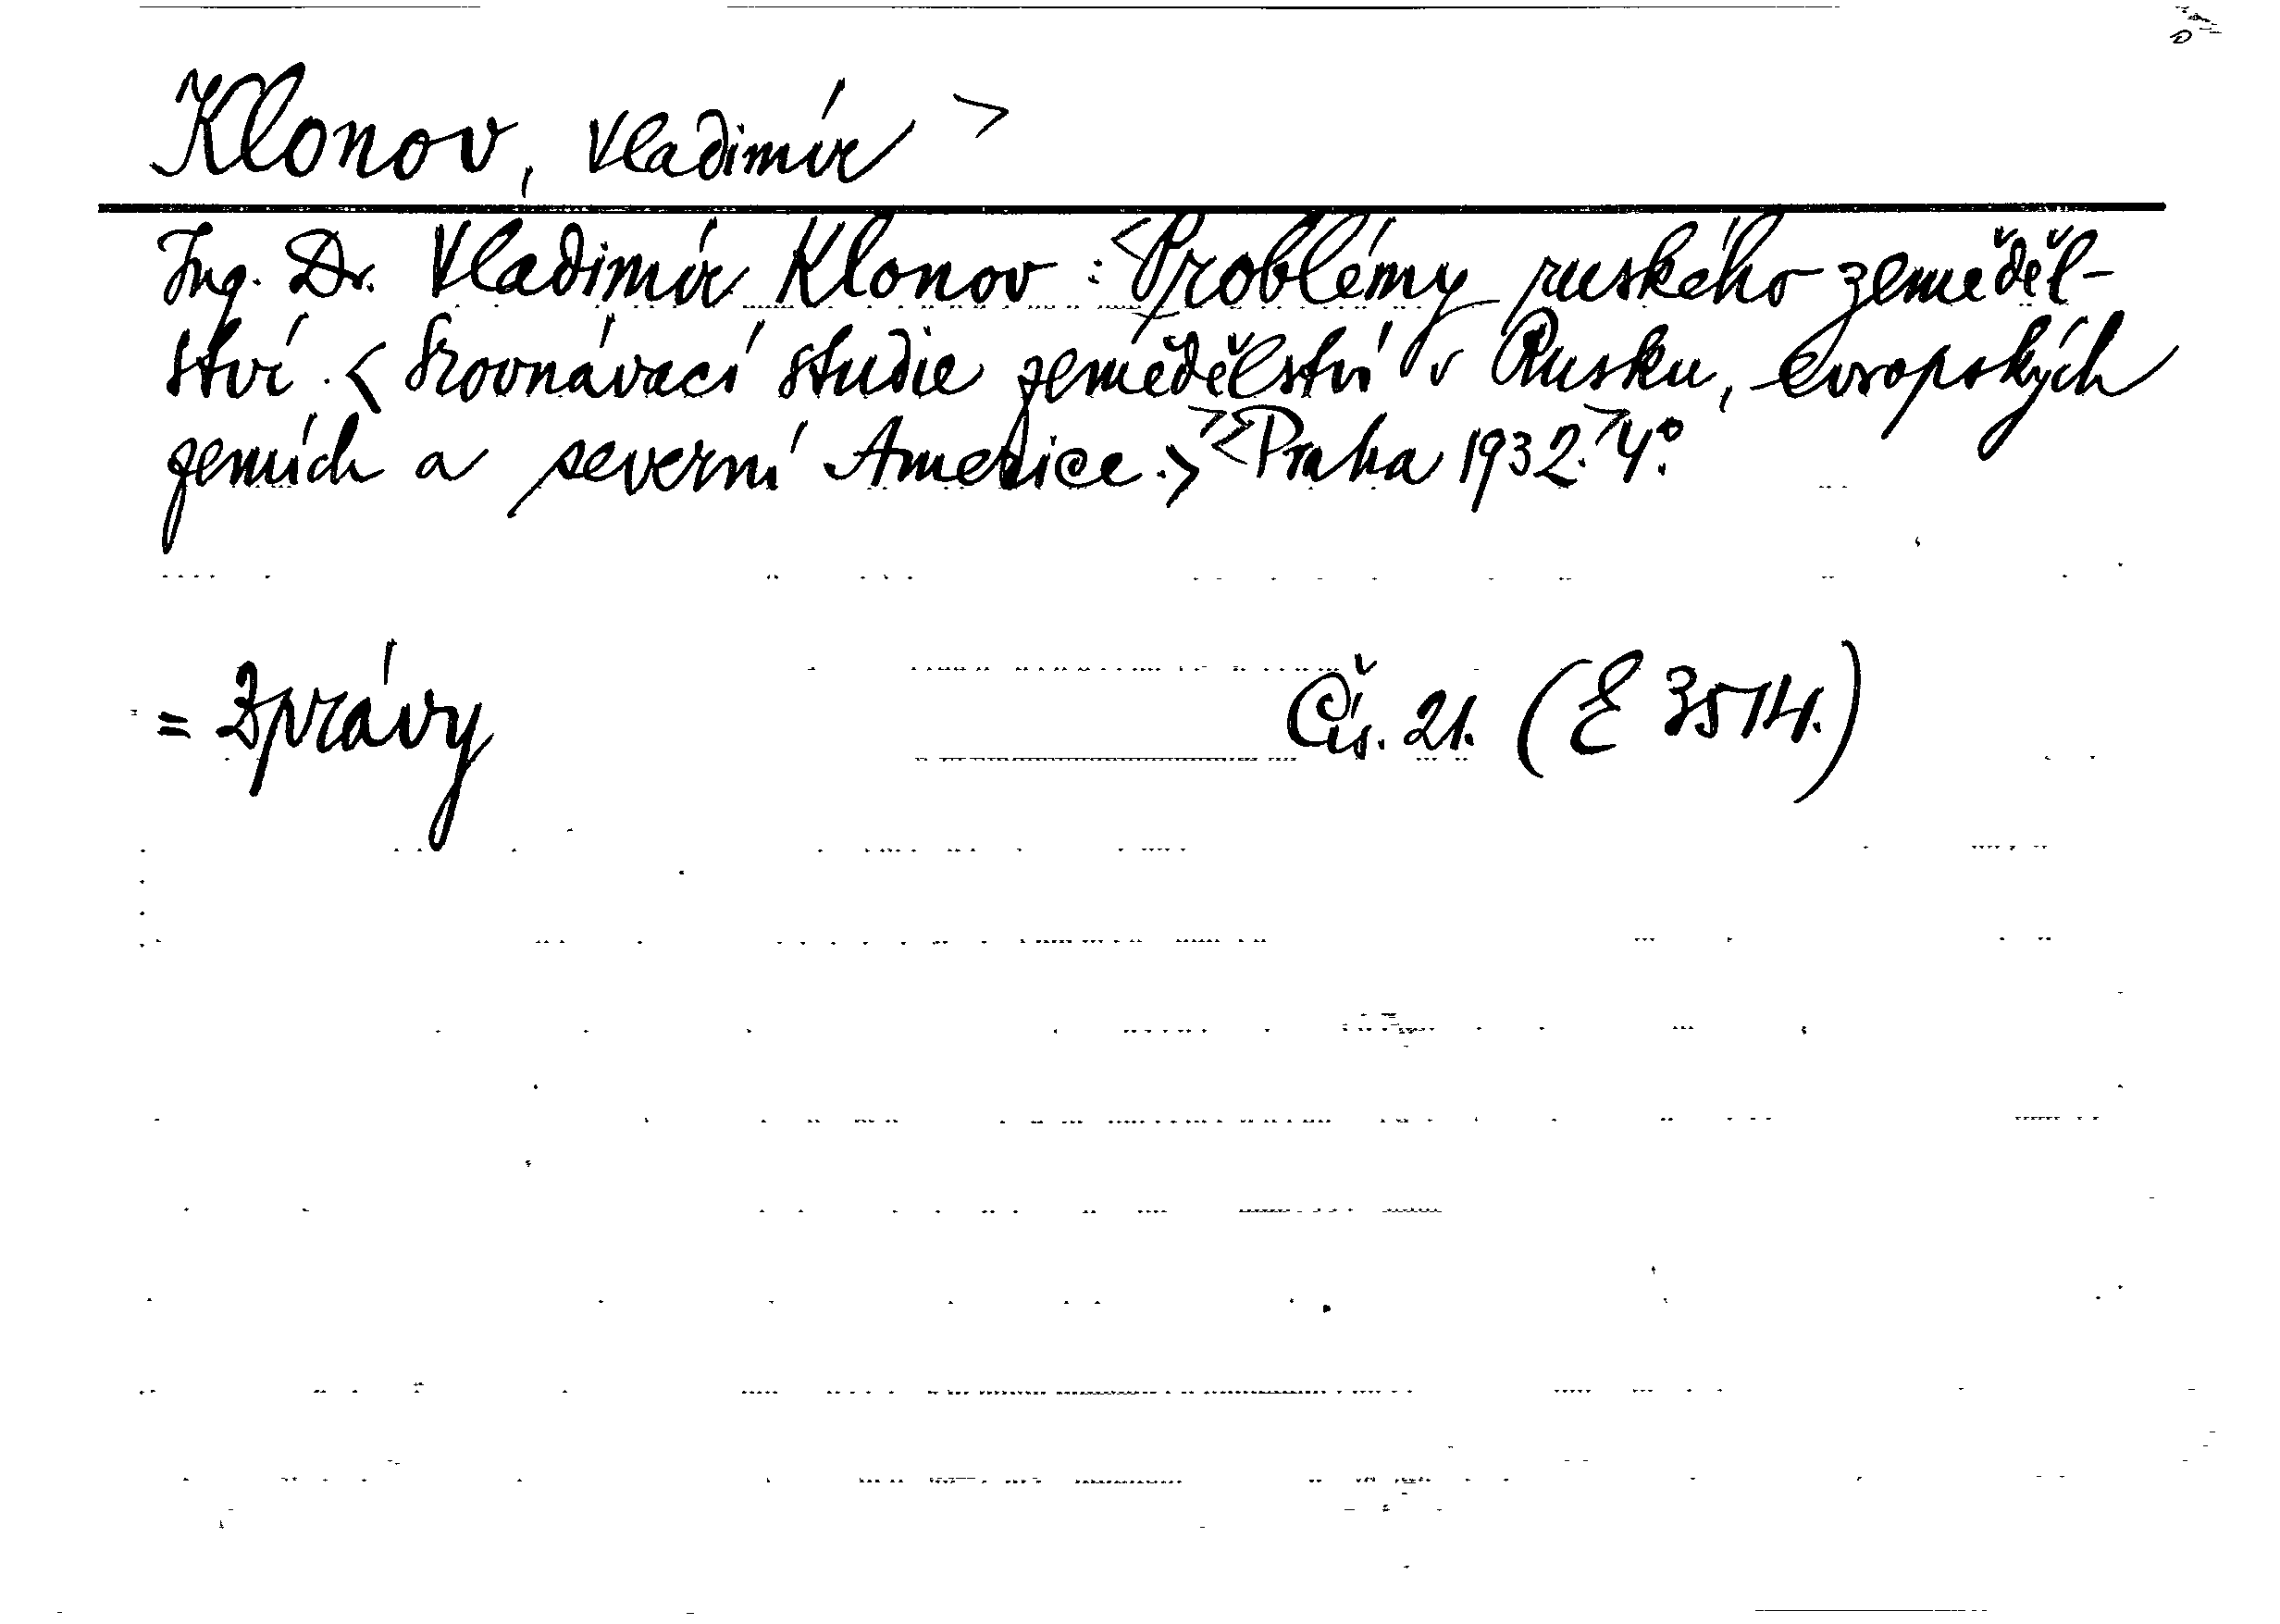 Klonov, Vladimír >
Ing. Dr. Vladimír Klonov : <Problémy ruského zeměděl-
ství. < Srovnávací studie zemědělství v Rusku, evropských
zemích a severní Americe.>> <Praha 1932.> 4°.
= Zprávy Čís. 21. (E 3514.)